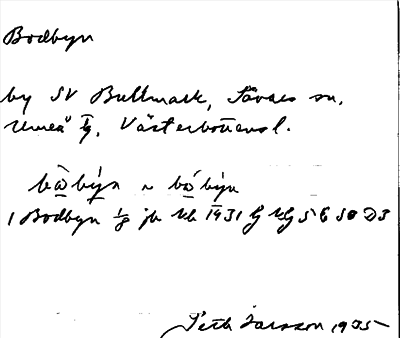 Bodbyn
by SV Bullmark, Sävars sn,
Umeå tg, Västerbottensl.
bò̲bý̲n ~ bò̲býn
1 Bodbyn 1/8 jb Kb 1931
Seth Larsson 1935